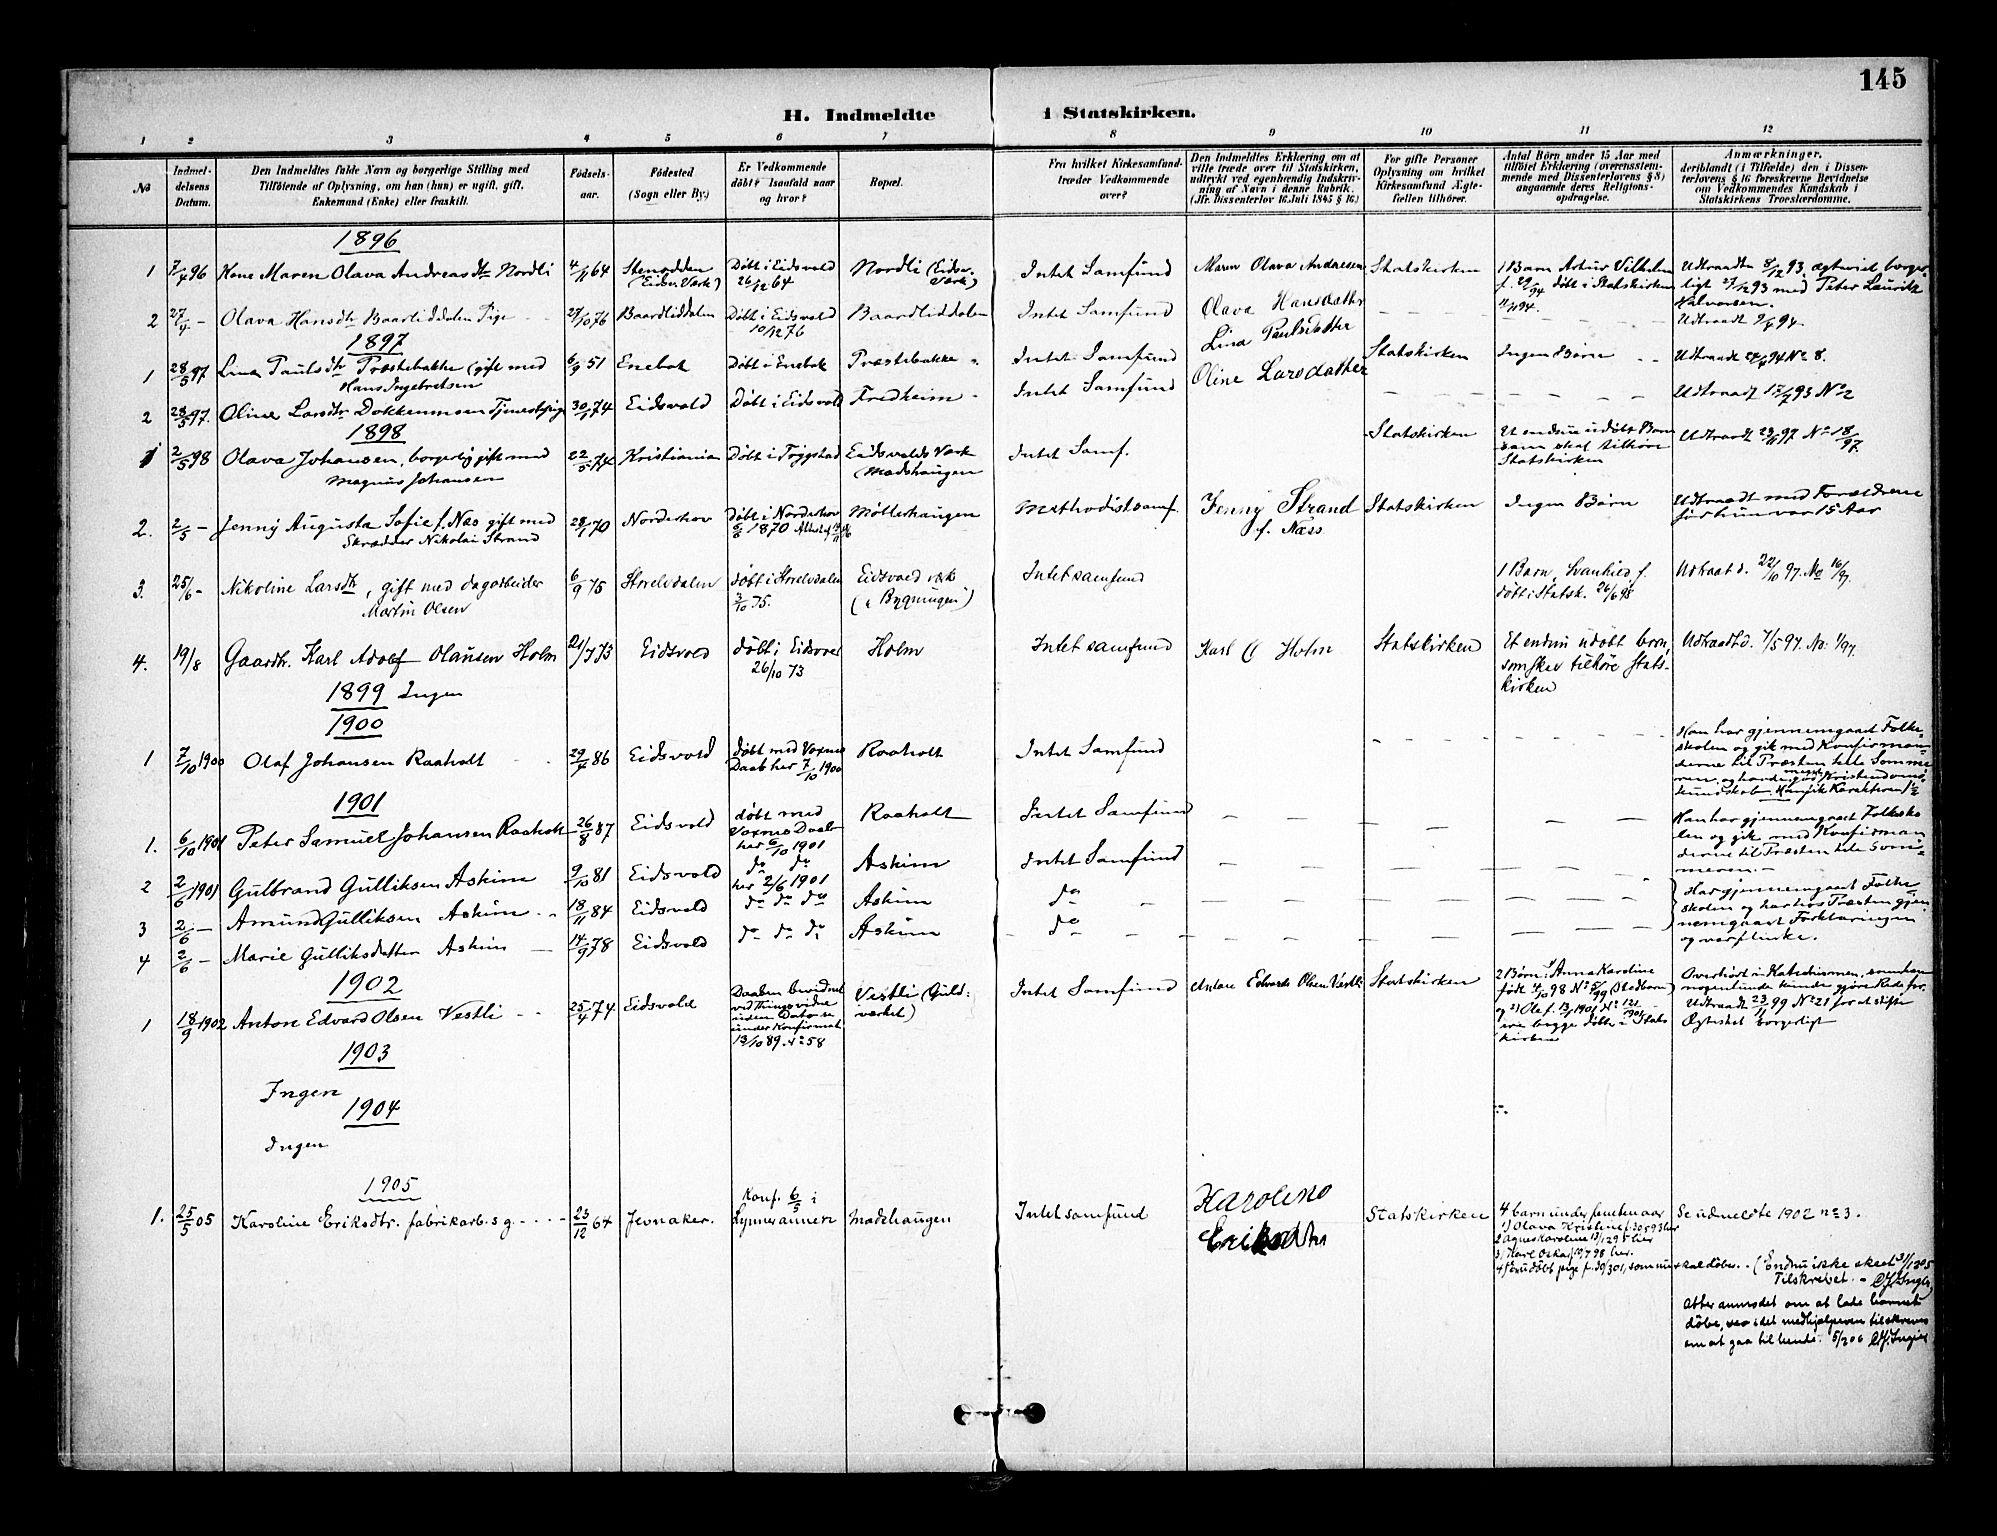 145
H. Indmeldte i Statskirken.
1 2 3 4 5 6 7 8 9 10 11 12
No
Indmel-
delsens
Datum.
Den Indmeldtes fulde Navn og borgerlige Stilling med
Tilføiende af Oplysning, om han (hun) er ugift, gift,
Enkemand (Enke) eller fraskilt.
Fødsels-
aar.
Fødested
(Sogn eller By.)
Er Vedkommende
døbt? Isaafald naar
og hvor?
Bopæl.
Fra hvilket Kirkesamfund
træder Vedkommende
over?
Den Indmeldtes Erklæring om at
ville træde over til Statskirken,
udtrykt ved egenhændig Indskriv-
ning af Navn i denne Rubrik.
(Jfr. Dissenterlov 16 Juli 1845 § 16.)
For gifte Personer
Oplysning om hvilket
Kirkesamfund Ægte-
fællen tilhører.
Antal Børn under 15 Aar med
tilføiet Erklæring (overensstem-
mende med Dissenterlovens § 8)
angaaende deres Religions-
opdragelse.
Anmærkninger,
deriblandt (i Tilfælde) den i Dissen-
terlovens § 16 foreskrevne Bevidnelse
om Vedkommendes Kundskab i
Statskirkens Troeslærdomme.
1896
1 7/4 96 Kone Maren Olava Andreasdtr Nordli 4/11 64 Stensdden (Eidsv. Værk) Døbt i Eidsvold 26/12 64 Nordli (Eidsv. Værk) Intet Samfund Maren Olava Andresen Statskirken 1 Barn Artur Vilhelm f. 29/ 94 døbt i Statskirken 94. Udtraadte 8/12 93, ægteviet borger-
ligt 27/12 93 med Peter Laurits
Halvorsen.
2 27/4 – Olava Hansdtr Baarliddalen Pige 27/10 76 Baardliddalen Døbt i Eidsvold 10/12 76 Baardliddalen Intet Samfund Olava Hansdatter Udtraadt 9/4 94.
1897
1 28/5 97 Lina Paulsdtr Præstebakke (gift med
Hans Ingebretsen 6/9 51 Enebak Døbt i Enebak Præstebakke Intet Samfund Lina Paulsdatter Statskirken Ingen Børn Udtraadt 94 No 8.
2 28/5 97. Oline Larsdtr. Dokkenmoen Tjenestepige 30/1 74 Eidsvold Døbt i Eidsvold Fredheim Intet Samfund Oline Larsdatter Udtraadt 93 No 2
1898
1 2/5 98 Olava Johansen, borgerlig gift med
Magnus Johansen 22/5 74 Kristiania Døbt i Trygstad Eidsvolds Værk
Madshaugen Intet Samf. Statskirken Et endnu udøbt Barn
som skal tilhøre
Statskirken Udtraadt 29/ 97 No 18/97.
2. 2/5 – Jenny Augusta Sofie f. Næs gift med
Skrædder Nikolai Strand 28/1 70 Norderhov Døbt i Norderhov
6/6 1870 Møllerhaugen Methodistsamf. Jenny Strand
f. Næss Statskirken Ingen Børn Udtraadt med Forældrene
før hun var 15 Aar
3. 25/6 – Nikoline Larsdtr, gift med dagarbeider
Martin Olsen 6/9 75 Storelvdalen døbt i Storelvdalen
3/10 75. Eidsvold værk
(i Bygningen) Intet samfund 1 Barn, f.
døbt i Statsk. 26/6 98 Udtraadt d. 22/10 97. No 16/97.
4. 19/8 Gaardbr. Karl Adolf Olausen Holm 21/7 73 Eidsvold døbt i Eidsvold
26/10 73 Holm Intet samfund Karl O Holm Statskirken Et endnu udøbt barn,
som skal tilhøre Stats-
kirken Udtraadt d. 7/5 97. No. 1/97.
1899 Ingen
1900
1 7/10 1900 Olaf Johansen Raaholt 29/4 86 Eidsvold døbt med Voxne
Daab her 7/10 1900 Raaholt Intet Samfund Han har gjennemgaaet Folke-
skolen og gik med Konfirman-
derne til Præsten hele Somme-
ren, og havde meget god Kristendoms-
kundskab. Han fik Karakteren 1½
1901
1. 6/10 1901 Peter Samuel Johansen Raaholt 26/8 87 Eidsvold døbt med
Voxne Daab
her 6/10 1901 Raaholt Intet Samfund Han har gjennemgaaet Folkesko-
len og gik med Konfirman
derne til Præsten hele Som-
meren. –
2 2/6 1901 Gulbrand Gulliksen Askim 9/10 81 Eidsvold do do
her 2/6 1901 Askim Intet Samfund Har gjennemgaaet Folke-
skolen og har hos Præsten gjen-
nemgaaet Forklaringen
og var flinke.
3 2/6 – Amund Gulliksen Askim 18/11 84 Eidsvold do do do Askim do
4 2/6 – Marie Gulliksdatter Askim 14/9 78 Eidsvold do do do Askim do
1902
1 18/9 1902 Anton Edvard Olsen Vestli 25/4 74. Eidsvold Daaben bevidnet
ved Thingsvidne
uden Dato se
under Konfirmat
13/10 89. No 58 Vestli (Guld-
værket) Intet Samfund Antore Edvards Olsen Vestli Statskirken 2 Børn: 1) Anna Karoline
født 4/10 98 No 5/99 (Blodbarn)
og 2) Olaf f. 13/ 1901 No 121/1901
ere begge døbte i Stats
kirken Overhørt i Katekismen, som han
nogenlunde kunde gjøre Rede for.
Udtraadt 23/11 99 No 21 for at stifte
Ægteskab borgerligt
1903
Ingen
1904
Ingen
1905
1. 25/5 05 Karoline Eriksdtr. fabrikarb. s g. 23/12 64 Jevnaker. Konf. 6/5 i
Lynner annex Madshaugen Intet samfund Karoline
Eriksdtr Statskirken 4 barn under femten aar
1) Olava Kristine f. 30/5 93 her
2 Agnes Karoline 13/12 95 her
3, Karl Oskar 19/7 98 her.
4) En udøbt pige f. 30/3 01, som nu skal døbes. Se udmeldte 1902 no 3.
(Endnu ikke skeet 31/12 05
Tilskrevet. –
Atter anmodet om at lade barnet
døbe, idet medhjælperen tilskreves
om at gaa til hende. 5/2 06